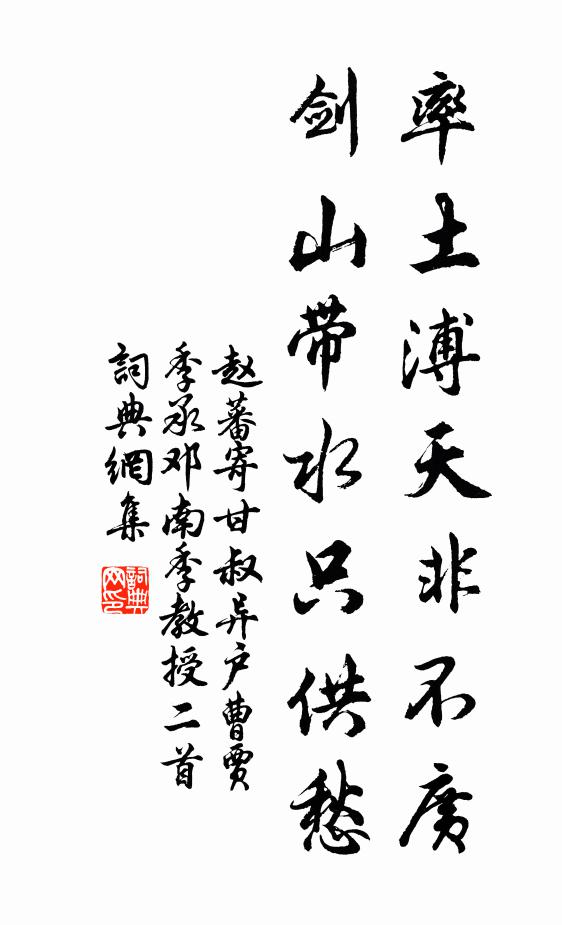 率土溥天非不廣
剑山带水只供愁
赵蕃寄甘叔异户曹贾
季承邓南季教授二首
詞典網集
詞典網印